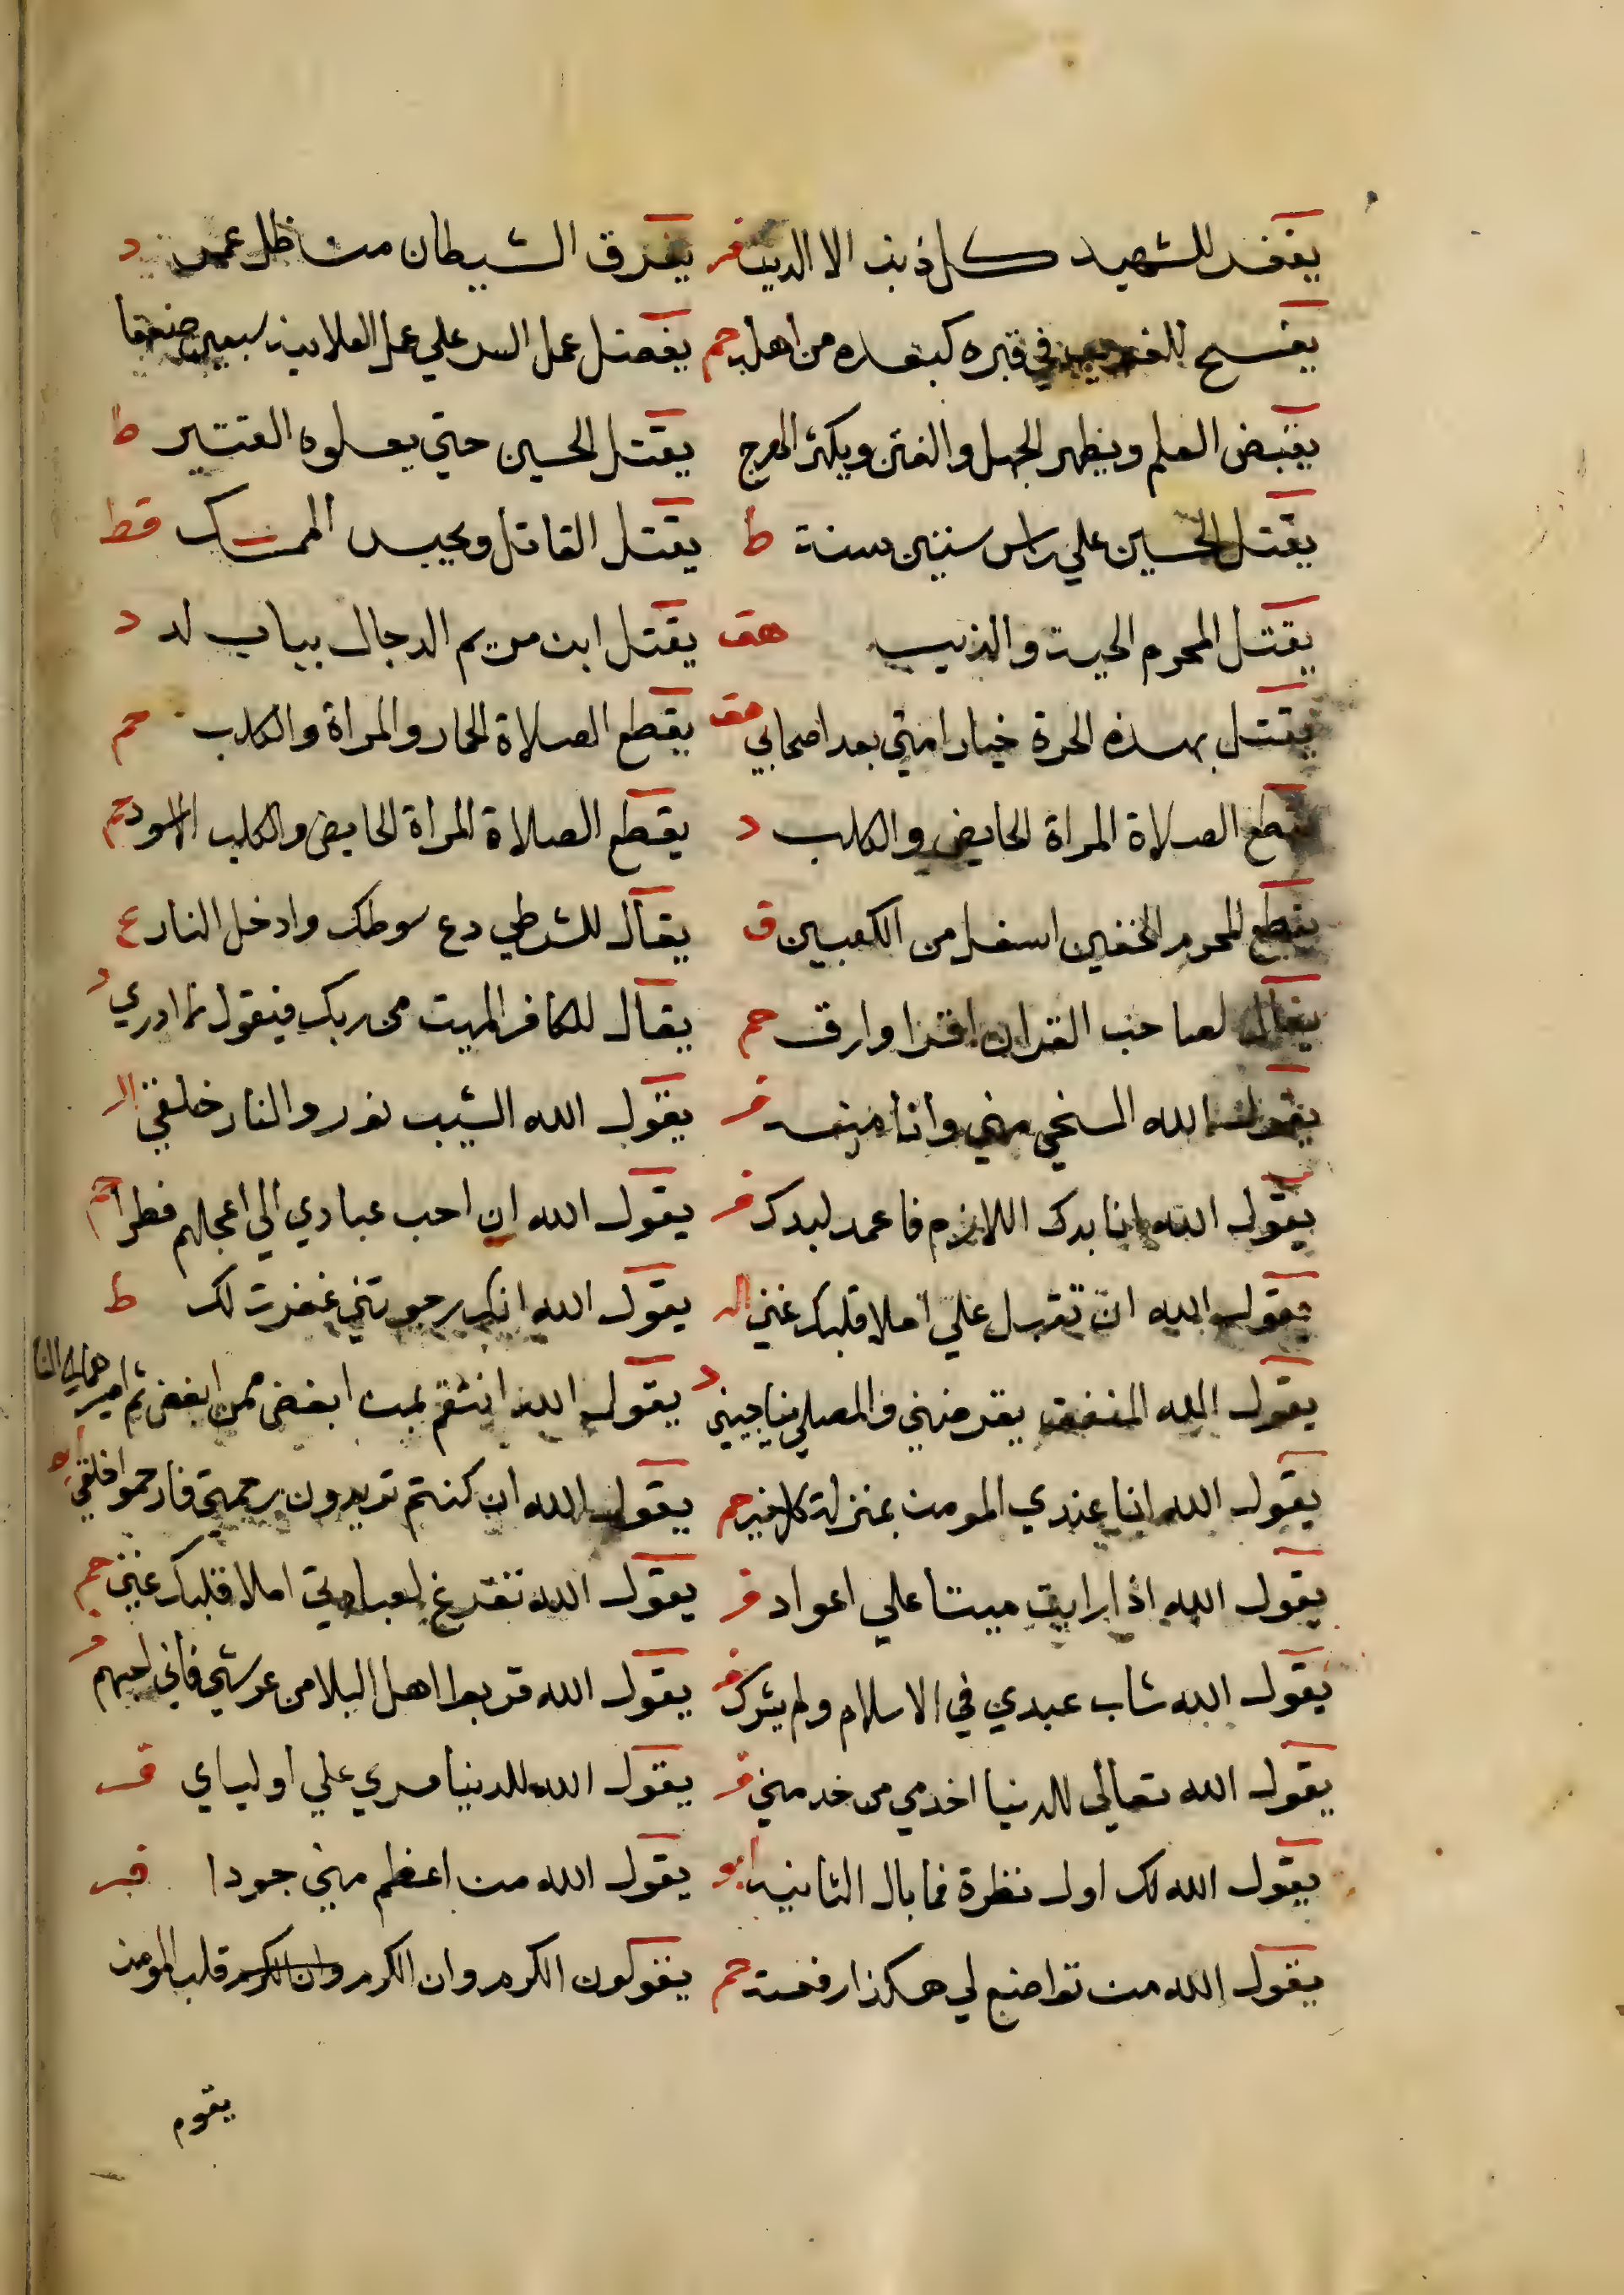 يغفر للشهيد كل ذنب الا الدين فر يفرق الشيطان من ظل عمر د
يفسح للغريب في قبره كبعده من اهله حم يفضل عمل السر علي عمل العلانية سبعين ضعفا
يقبض العلم ويظهر الجهل والفتن ويكثر الهرج يقتل الحسين حتي يعلوه القتير ط
يقتل الحسين علي راس ستين سنة ط يقتل القاتل ويحبس الممسك قط
يقتل المحرم الحية والذيب هق يقتل ابن مريم الدجال بباب لد د
يقتل بهذه الحرة خيار امتي بعد اصحابي هق يقطع الصلاة الحمار والمراة والكلب حم
يقطع الصلاة المراة الحايض والكلب د يقطع الصلاة المراة الحايض والكلب الاسود حم
يقطع المحرم الخفين اسفل من الكعبين ق يقال للشرطي دع سوطك وادخل النار ع
يقال لصاحب القران اقرا وارق حم يقال للكافر الميت من ربك فيقول ما ادري د
يقول الله السخي مني وانا منه فر يقول الله الشيب نور والنار خلقي
يقول الله انا بدك اللازم فاعمد لبدك فر يقول الله ان احب عبادي الي اعجلهم فطرا حم
يقول الله ان تقبل علي املا قلبك غني يقول الله انك رجوتني غفرت لك ط
يقول الله المنفق يقرضني والمصلي يناجيني د يقول الله انتقم بمن ابغض ممن ابغض ثم اصير
يقول الله انا عندي المومن بمنزلة كل خير حم يقول الله ان كنتم تريدون رحمتي فارحموا خلقي
يقول الله اذا رايت ميتا علي اعواد فر يقول الله تفرغ لعبادتي املا قلبك غني حم
يقول الله شاب عبدي في الاسلام ولم يشرك فر يقول الله قربوا اهل البلا من عرشي فاني احبهم فر
يقول الله تعالي للدنيا اخدمي من خدمني فر يقول الله للدنيا مري علي اولياي فر
يقول الله لك اول نظرة فما بال الثانية ابو يقول الله من اعظم مني جودا فر
يقول الله من تواضع لي هكذا رفعته حم يقولون الكرم وان الكرم وان الكرم قلب المومن
يقوم